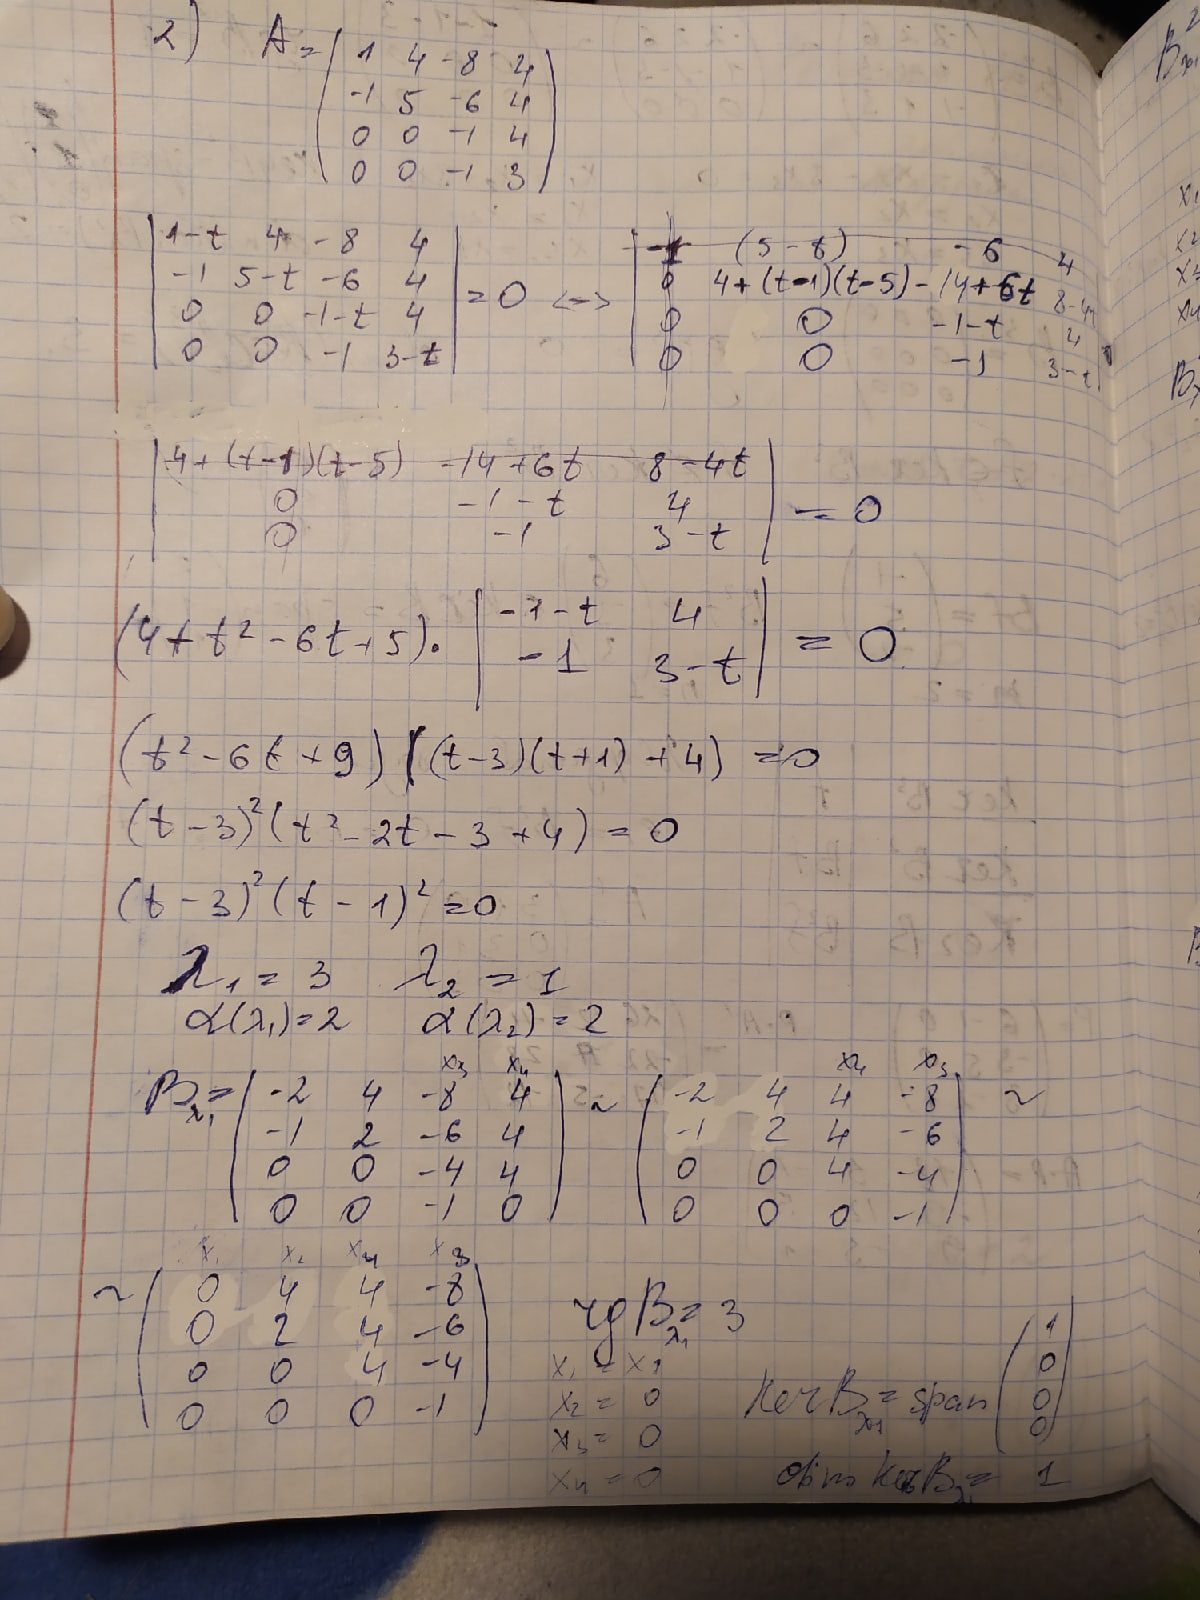 2) A = ( 1 4 -8 4
-1 5 -6 4
0 0 -1 4
0 0 -1 3 )
| 1-t 4 -8 4
-1 5-t -6 4
0 0 -1-t 4
0 0 -1 3-t | = 0 <->
| -1 (5-t) -6 4
0 4+(t-1)(t-5) -14+6t 8-4t
0 0 -1-t 4
0 0 -1 3-t |
| 4+(t-1)(t-5) -14+6t 8-4t
0 -1-t 4
0 -1 3-t | = 0
(4+t²-6t+5)· | -1-t 4
-1 3-t | = 0
(t²-6t+9)((t-3)(t+1)+4) = 0
(t-3)²(t²-2t-3+4) = 0
(t-3)²(t-1)² = 0
λ₁ = 3 λ₂ = 1
α(λ₁)=2 α(λ₂)=2
x₃ x₄
B_λ₁ = ( -2 4 -8 4
-1 2 -6 4
0 0 -4 4
0 0 -1 0 ) ~
x₄ x₃
( -2 4 4 -8
-1 2 4 -6
0 0 4 -4
0 0 0 -1 ) ~
x₁ x₂ x₄ x₃
~ ( 0 4 4 -8
0 2 4 -6
0 0 4 -4
0 0 0 -1 )
rg B_λ₁ = 3
x₁ = x₁
x₂ = 0
x₃ = 0
x₄ = 0
ker B_λ₁ = span ( 1
0
0
0 )
dim ker B_λ₁ = 1